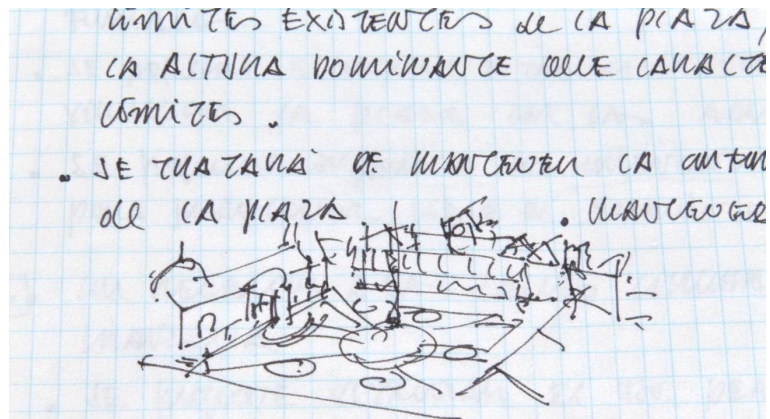 LÍMITES EXISTENTES de LA PLAZA,
LA ALTURA DOMINANTE QUE CARACTE
LÍMITES.
. SE TRATARÁ DE MANTENER LA
de LA PLAZA . MANTENER